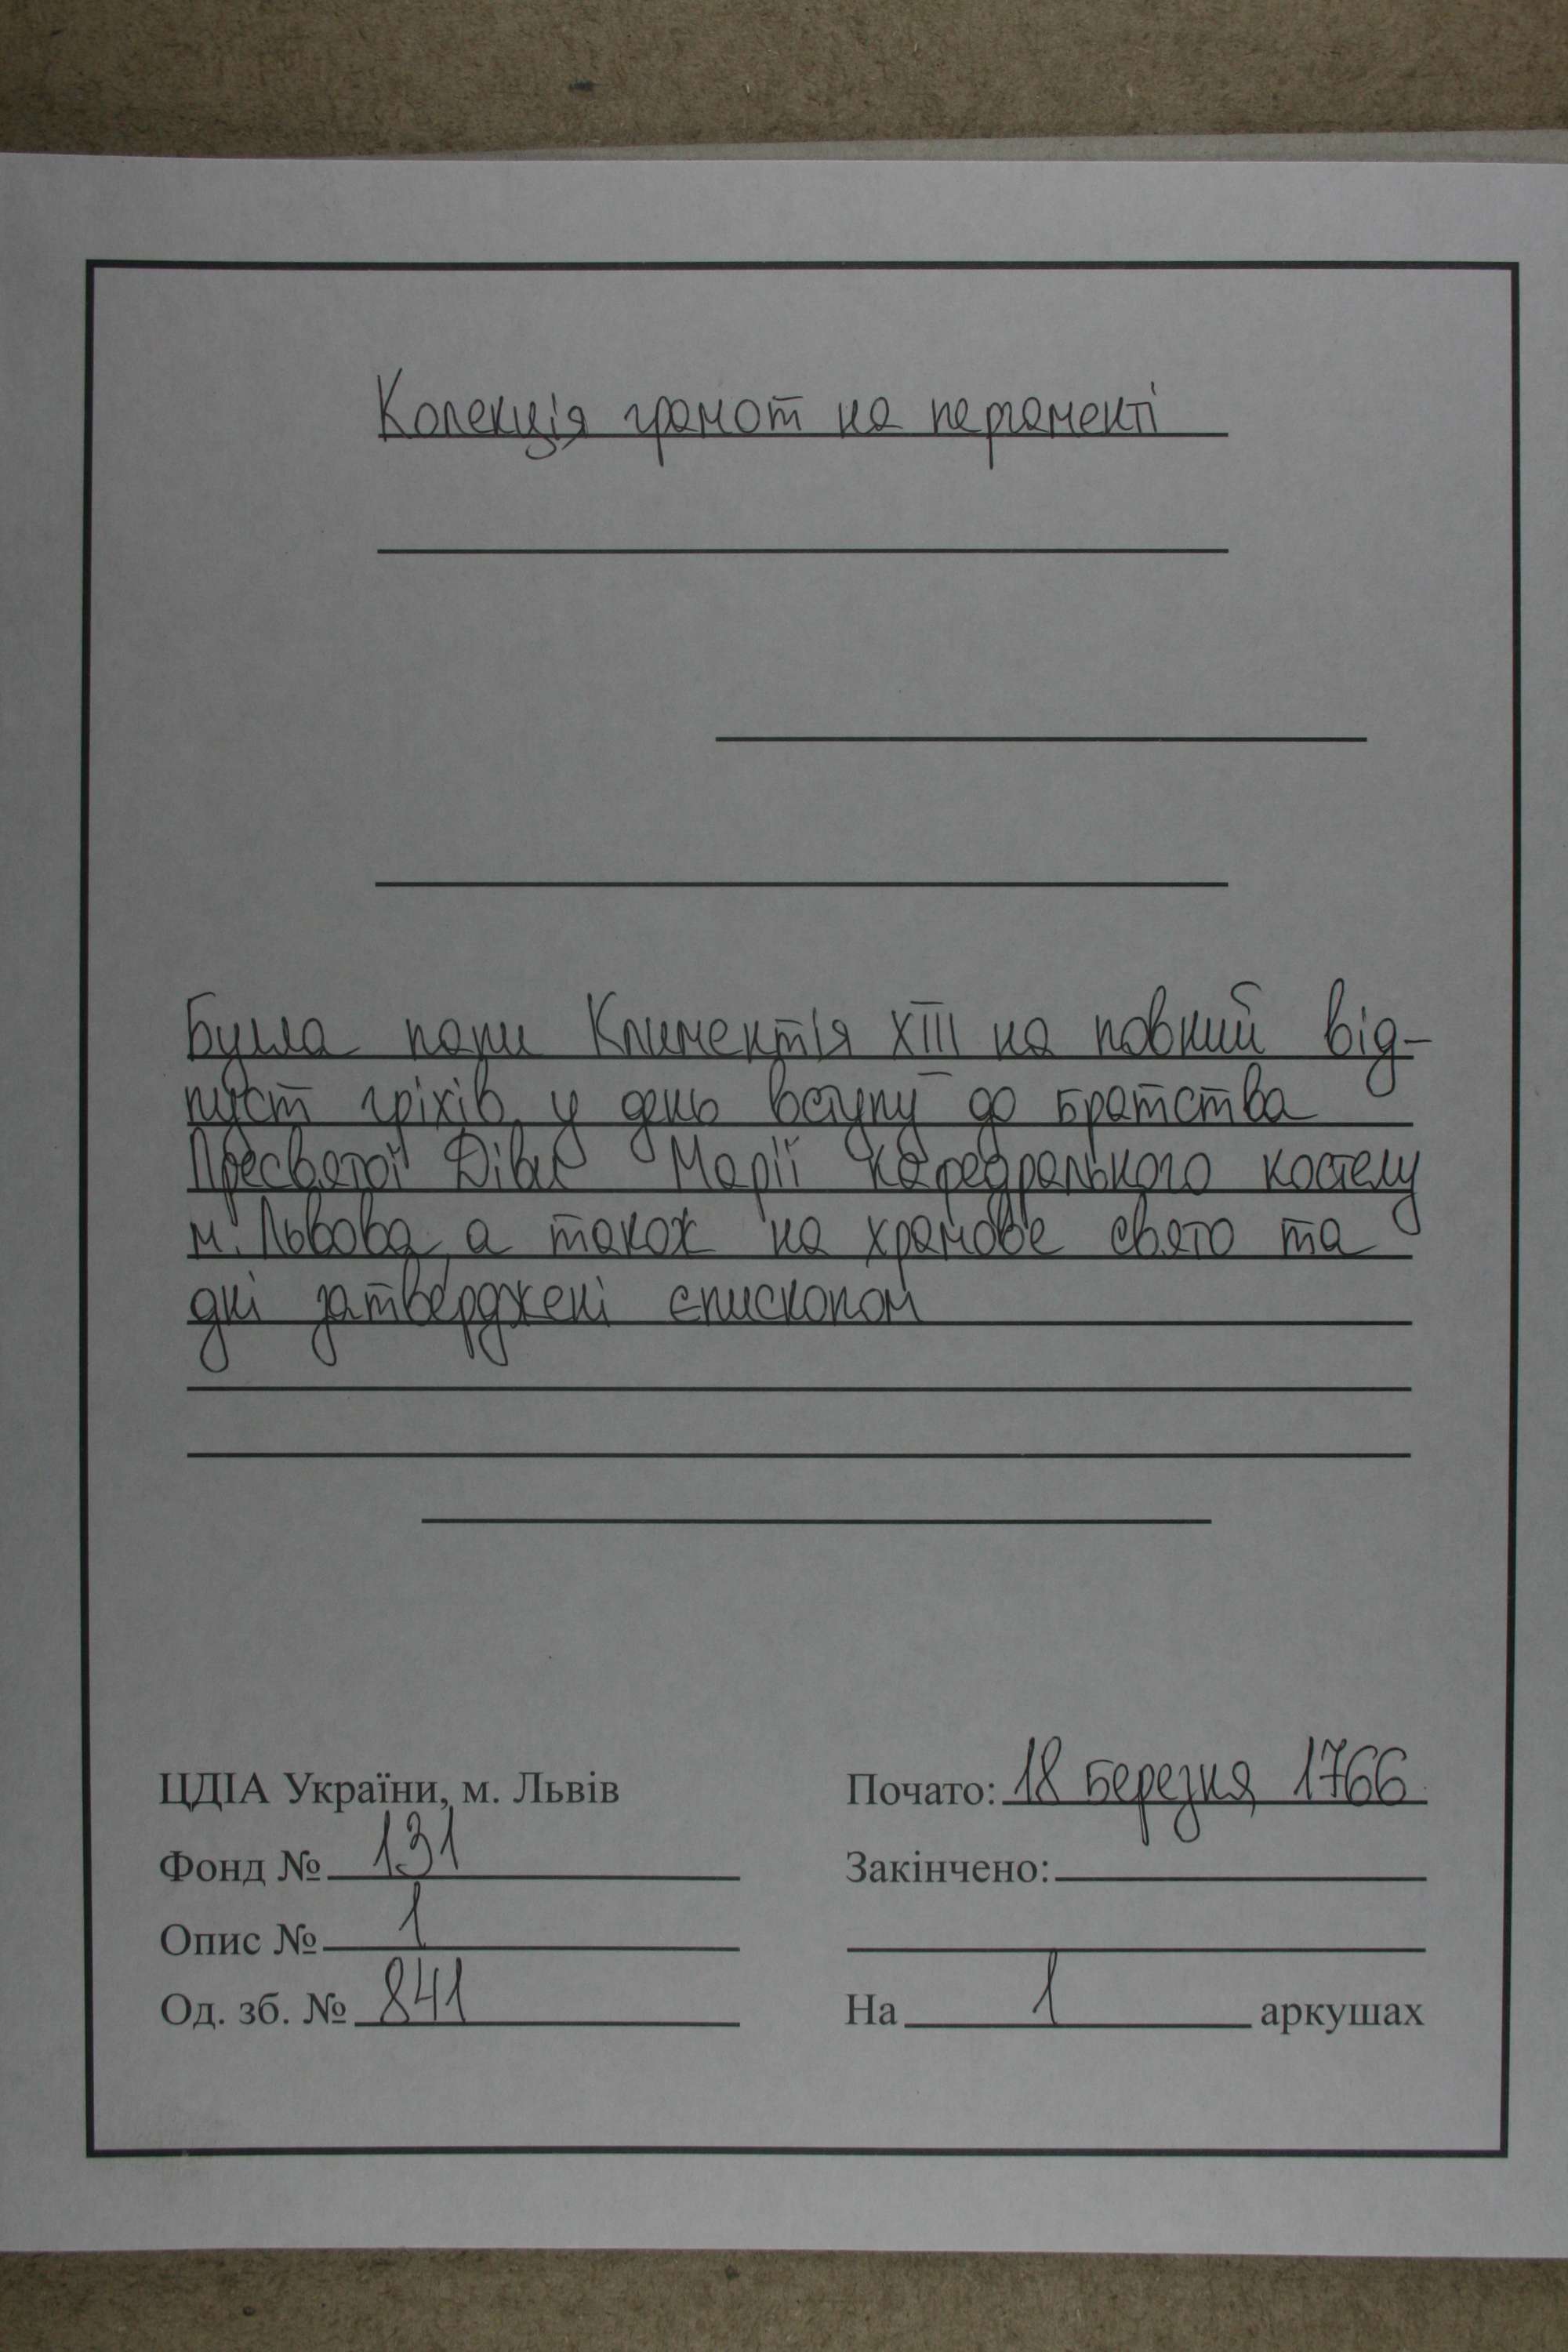 Колекція грамот на пергаменті
Булла папи Климентія XIII на повний від-
пуст гріхів у день вступу до братства
Пресвятої Діви Марії кафедрального костелу
м. Львова, а також на храмове свято та
дні затверджені єпископом
ЦДІА України, м. Львів
Почато: 18 березня 1766
Фонд № 131
Закінчено:
Опис № 1
Од. зб. № 841
На 1 аркушах